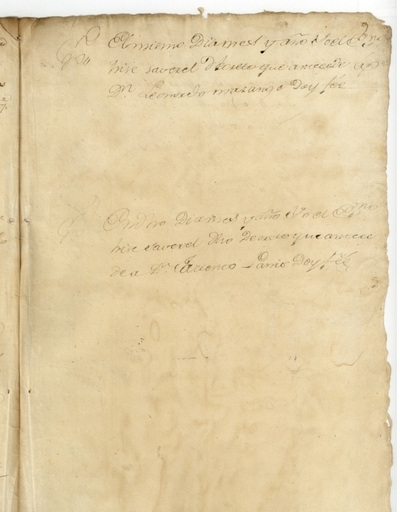 El mismo Dia mes y año Yo el
hise saver el Decreto que antecede a
Dn. Leonardo Doy fee
En dho Dia mes y año Yo el
hise saver el dho Decreto que antece
de a Dn. Doy fee